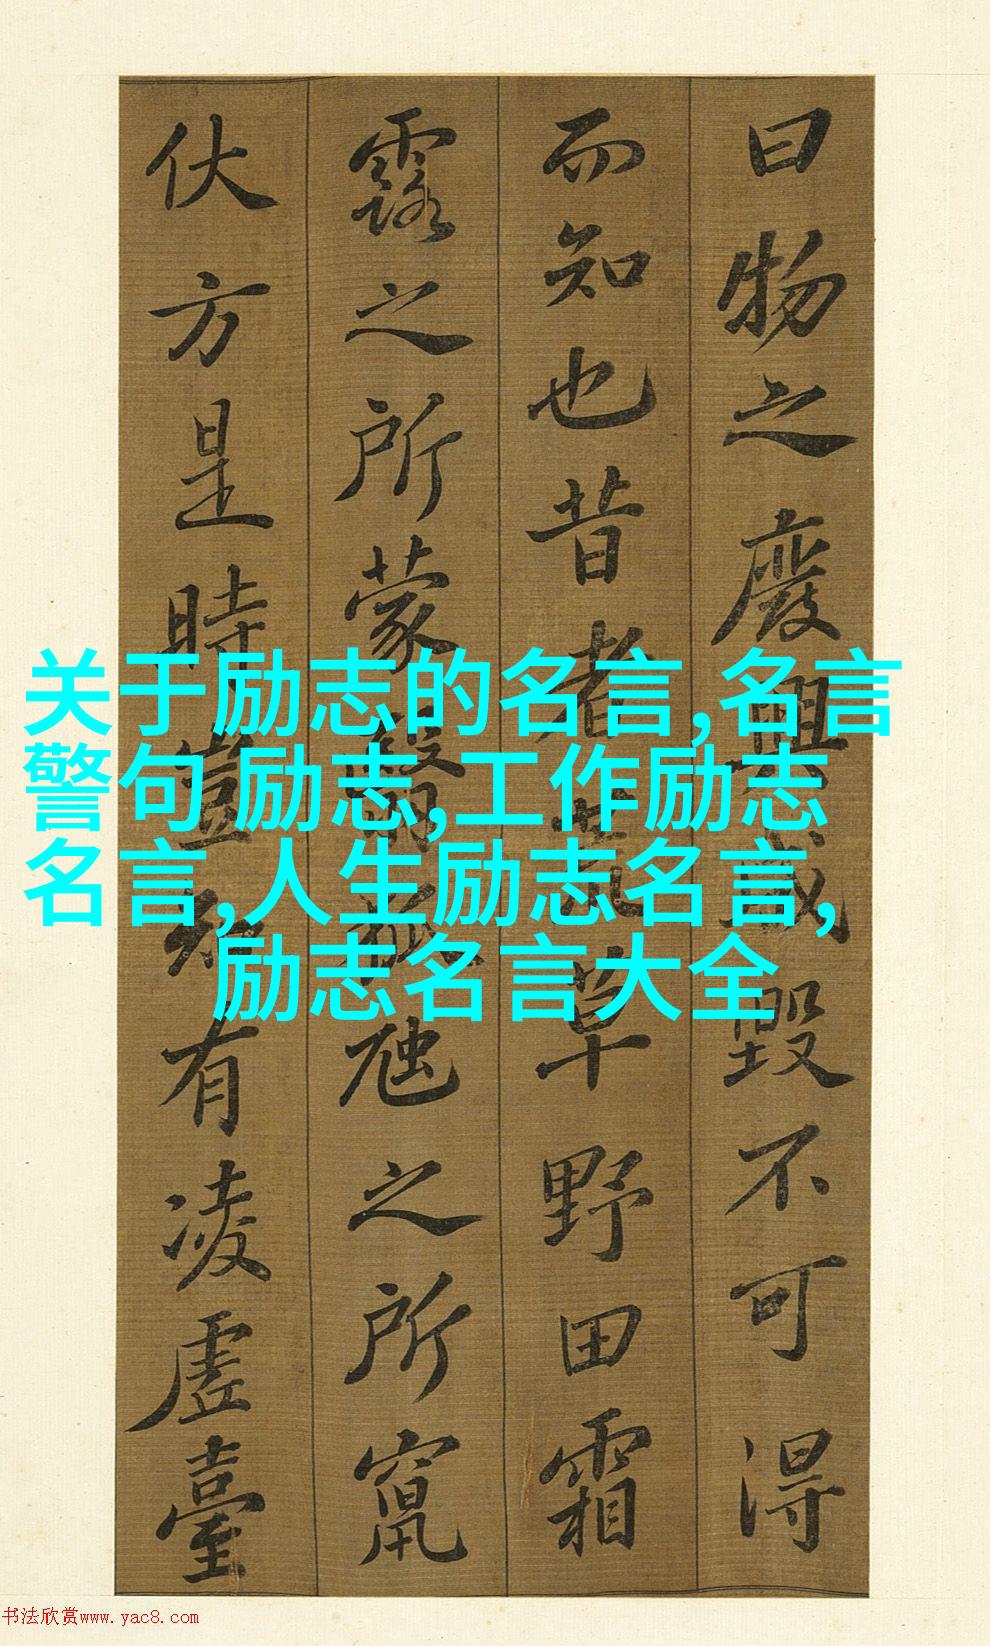 曰物之廢興成毀不可得
而知也昔者荒草野田霜
露之所蒙翳狐虺之所竄
伏方是時豈知有凌虛臺
关于励志的名言,名言
警句 励志,工作励志
名言,人生励志名言,
励志名言大全
书法欣赏www.yac8.com